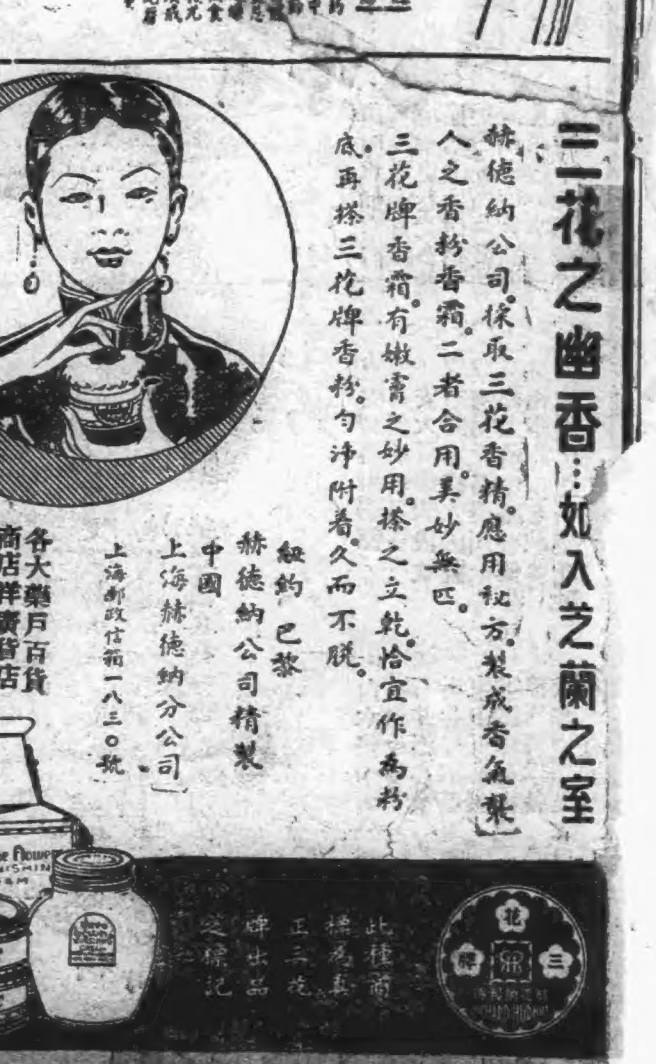 三花之幽香…如入芝蘭之室
赫德納公司。採取三花香精。應用秘方。製成香氣襲
人之香粉香霜。二者合用。美妙無匹。
三花牌香霜。有嫩膏之妙用。搽之立乾。恰宜作為粉
底。再搽三花牌香粉。勻淨附着。久而不脫。
紐約 巴黎
赫德納公司精製
中國
上海赫德納分公司
上海郵政信箱一八三〇號
各大藥戶百貨
商店洋廣貨店
花
三
牌
RICHARD HUDNUT
此種商
標為真
正三花
牌出品
之標記
FLOWERS